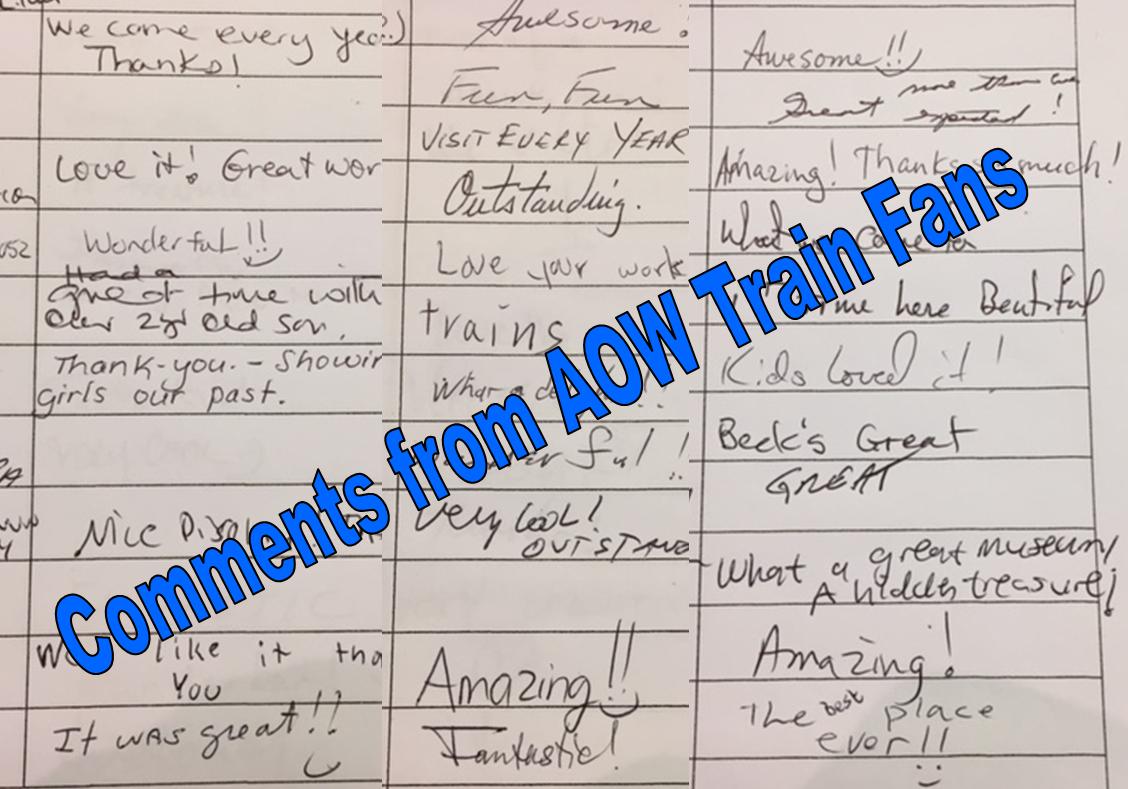 We come every year)
Thanks!
Love it! Great wor
Wonderful!!
Had a
great time with
our 2yr old son.
Thank-you. - Showin
girls our past.
Nice
like it tha
You
It was great!!
Awesome!
Fun, Fun
VISIT EVERY YEAR
Outstanding.
Love your work
trains
What a
ful!!
Very Cool!
OUTSTAND
Amazing!!
Fantastic!
Awesome!!
Great more than we
expected!
Amazing! Thanks so much!
What
time here Beutiful
Kids loved it!
Beck's Great
GREAT
What a great museum!
A hidden treasure!
Amazing!
The best place
ever!!
Comments from AOW Train Fans